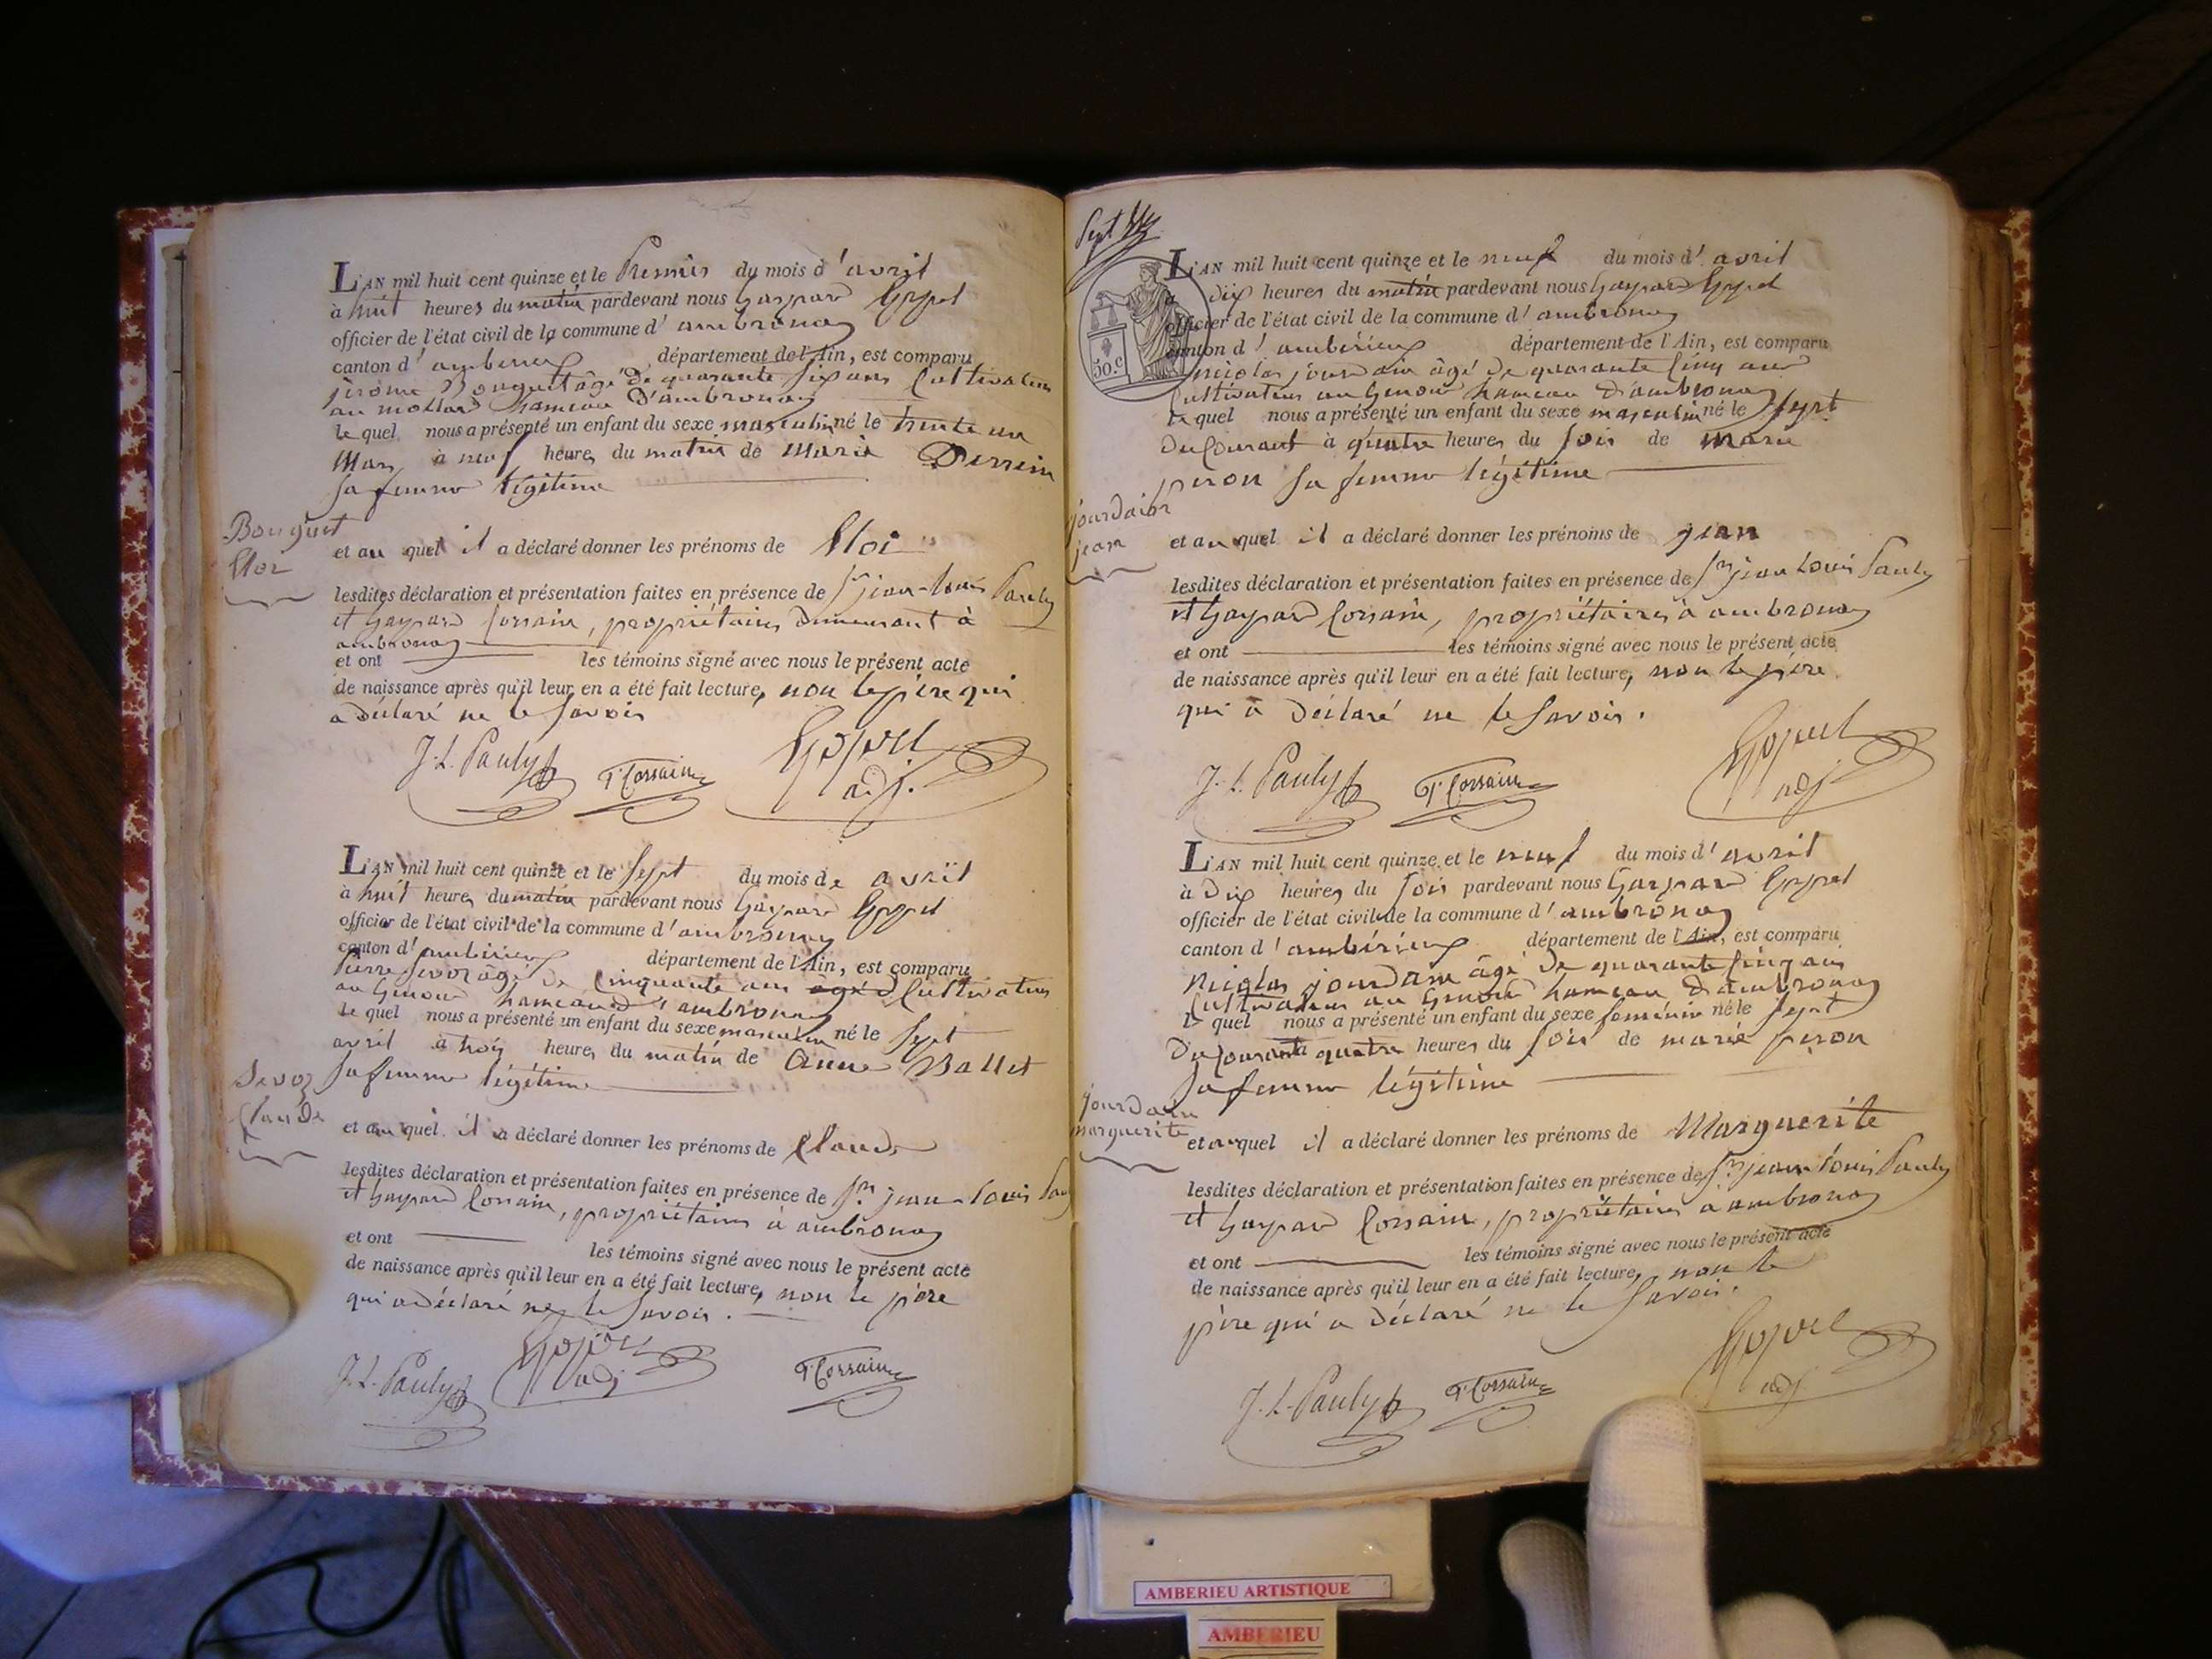 L'AN mil huit cent quinze et le Premier du mois d'avril
à huit heures du matin pardevant nous Gaspard
officier de l'état civil de la commune d'ambronay
canton d'amberieux département de l'Ain, est comparu
jérôme Bouguet âgé de quarante six ans Cultivateur
au mollard hameau d'ambronay
le quel nous a présenté un enfant du sexe masculin né le trente un
Mars à neuf heures du matin de Marie Perrein
sa femme légitime
Bouguet
Eloi
et au quel il a déclaré donner les prénoms de Eloi
lesdites déclaration et présentation faites en présence de Sr jean-Louis Pauly
et Gaspard Corsain, propriétaires demeurant à
ambronay
et ont les témoins signé avec nous le présent acte
de naissance après qu'il leur en a été fait lecture, non le père qui
a déclaré ne le savoir
J. L. Pauly G. Corsain adj.
L'AN mil huit cent quinze et le sept du mois de avril
à huit heures du matin pardevant nous Gaspard
officier de l'état civil de la commune d'ambronay
canton d'ambérieux département de l'Ain, est comparu
Pierre Sevoz âgé de Cinquante ans agé d Cultivateur
au Genoud hameau d'ambronay
le quel nous a présenté un enfant du sexe masculin né le sept
avril à trois heures du matin de Anne Ballet
sa femme légitime
Sevoz
Claude
et au quel il a déclaré donner les prénoms de Claude
lesdites déclaration et présentation faites en présence de Sr jean-Louis Pauly
et Gaspard Corsain, propriétaires à ambronay
et ont les témoins signé avec nous le présent acte
de naissance après qu'il leur en a été fait lecture, non le père
qui a déclaré ne le savoir.
J. L. Pauly adj G. Corsain
Sept
50.C
L'AN mil huit cent quinze et le neuf du mois d'avril
à dix heures du matin pardevant nous Gaspard
officier de l'état civil de la commune d'ambronay
canton d'ambérieux département de l'Ain, est comparu
nicolas jourdain âgé de quarante Cinq ans
Cultivateur au Genoud hameau d'ambronay
le quel nous a présenté un enfant du sexe masculin né le sept
du Courant à quatre heures du soir de Marie
peron sa femme légitime
jourdain
jean
et au quel il a déclaré donner les prénoms de jean
lesdites déclaration et présentation faites en présence de Sr jean Louis Pauly
et Gaspard Corsain, propriétaires à ambronay
et ont les témoins signé avec nous le présent acte
de naissance après qu'il leur en a été fait lecture, non le père
qui a déclaré ne le savoir.
J. L. Pauly G. Corsain adj
L'AN mil huit cent quinze et le neuf du mois d'avril
à dix heures du soir pardevant nous Gaspard
officier de l'état civil de la commune d'ambronay
canton d'ambérieux département de l'Ain, est comparu
Nicolas jourdain âgé de quarante Cinq ans
Cultivateur au Genoud hameau d'ambronay
le quel nous a présenté un enfant du sexe féminin né le sept
du Courant à quatre heures du soir de marie peron
sa femme légitime
jourdain
marguerite
et auquel il a déclaré donner les prénoms de Marguerite
lesdites déclaration et présentation faites en présence de Sr jean Louis Pauly
et Gaspard Corsain, propriétaires à ambronay
et ont les témoins signé avec nous le présent acte
de naissance après qu'il leur en a été fait lecture, non le
père qui a déclaré ne le savoir.
J. L. Pauly G. Corsain adj.
AMBERIEU ARTISTIQUE
AMBERIEU